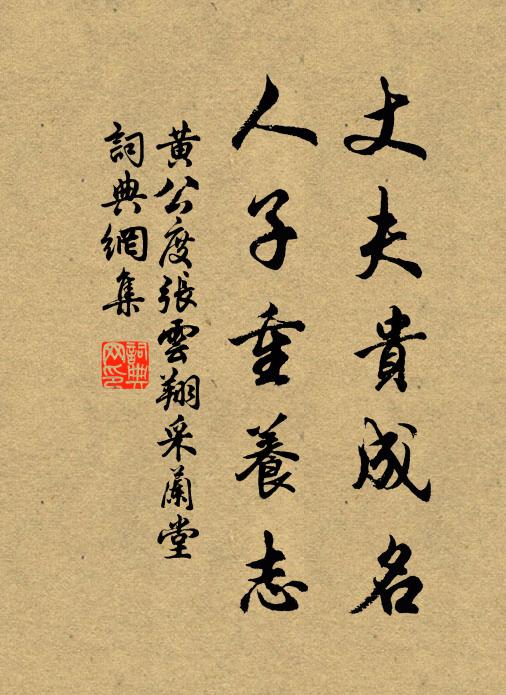 丈夫貴成名
人子重養志
黄公度張雲翔采蘭堂
詞典網集
詞典网印